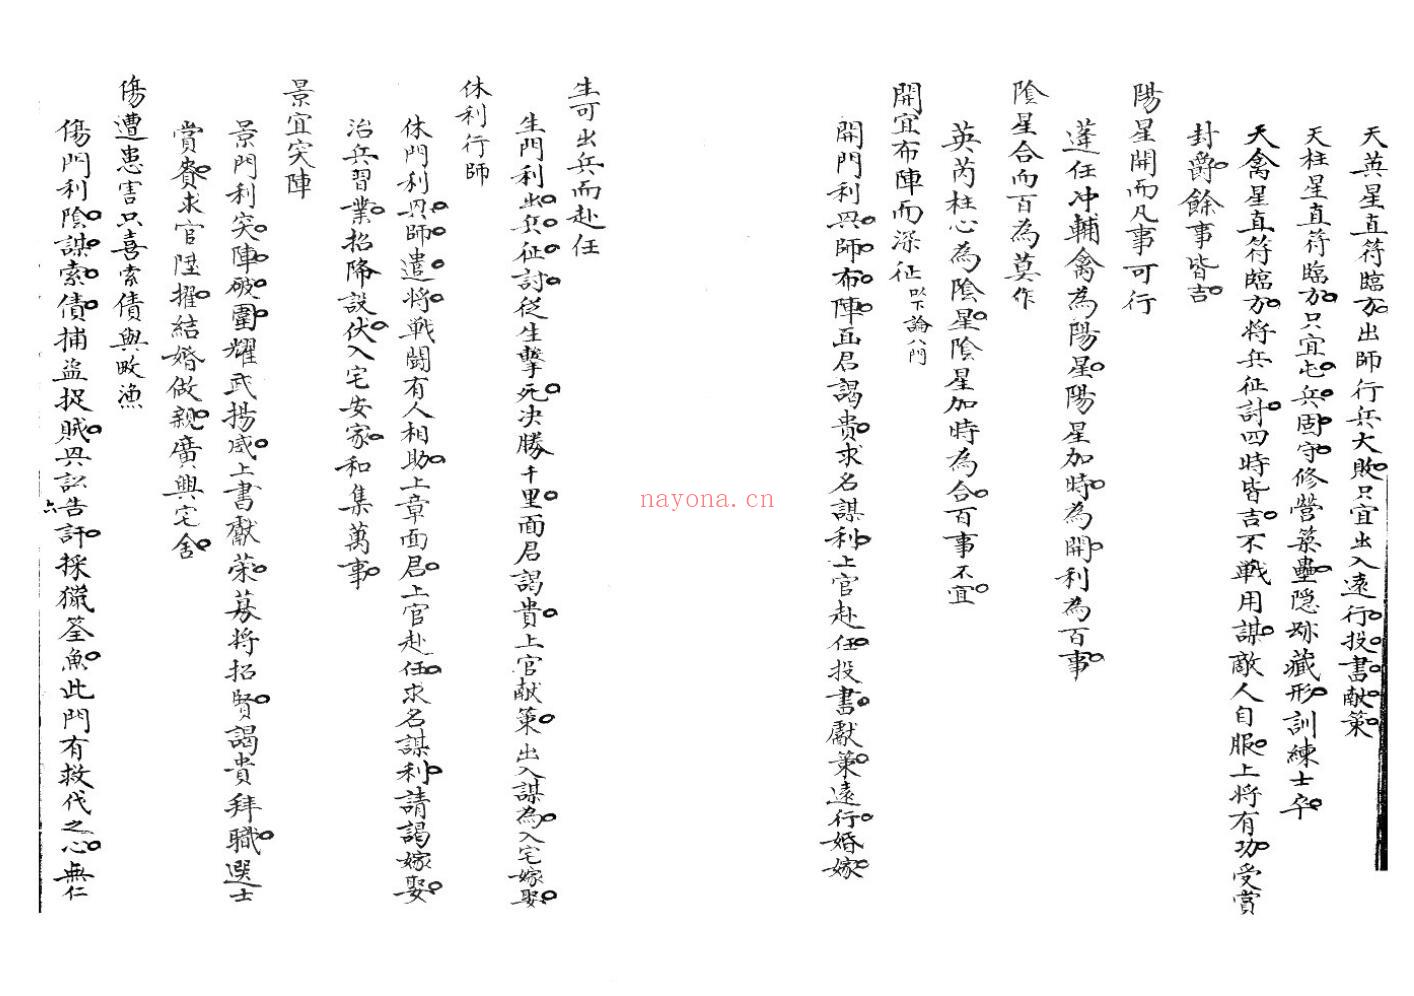 天英星直符臨方出師行兵大敗只宜出入遠行投書献策
天柱星直符臨方只宜屯兵固守修營築壘隐跡藏形訓練士卒
天禽星直符臨方将兵征討四時皆吉不戦用謀敵人自服上将有功受賞
封爵餘事皆吉
陽星開而凡事可行
蓬任冲輔禽為陽星陽星加時為開利為百事
陰星合而百為莫作
英芮柱心為陰星陰星加時為合百事不宜
開宜布陣而深征以下論八門
開門利興師布陣面君謁貴求名謀利上官赴任投書獻策遠行婚嫁
生可出兵而赴任
生門利出兵征討従生擊死决勝千里面君謁貴上官献策出入謀為入宅嫁娶
休利行師
休門利興師遣将戦闘有人相助上章面君上官赴任求名謀利請謁嫁娶
治兵習業招降設伏入宅安家和集萬事
景宜突陣
景門利突陣破圍耀武揚威上書獻策募将招賢謁貴拜職選士
賞賚求官陞擢結婚做親廣興宅舍
傷遭患害只喜索債與畋漁
傷門利陰謀索債捕盗捉賊興訟告訐採獵筌魚此門有救代之心無仁
六
nayona.cn